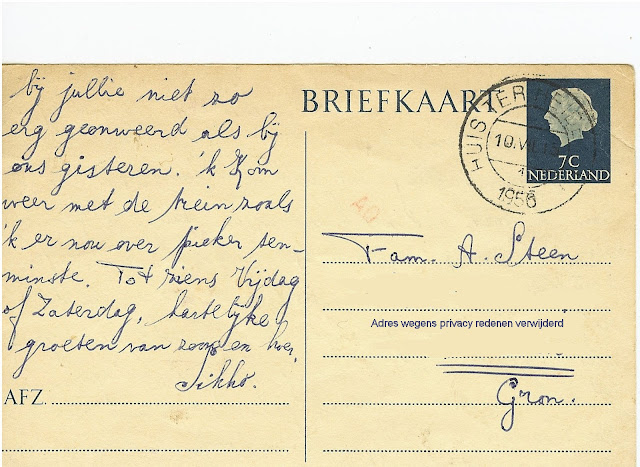 bij jullie niet zo
erg geonweerd als bij
ons gisteren. 'k Kom
weer met de trein zoals
'k er nou over pieker ten-
minste. Tot ziens Vrijdag
of Zaterdag, hartelijke
groeten van zoon en
Sikko.
AFZ.
BRIEFKAART
HUIS TER
10.VII
1956
7C
NEDERLAND
Fam. A. Steen
Adres wegens privacy redenen verwijderd
Gron.